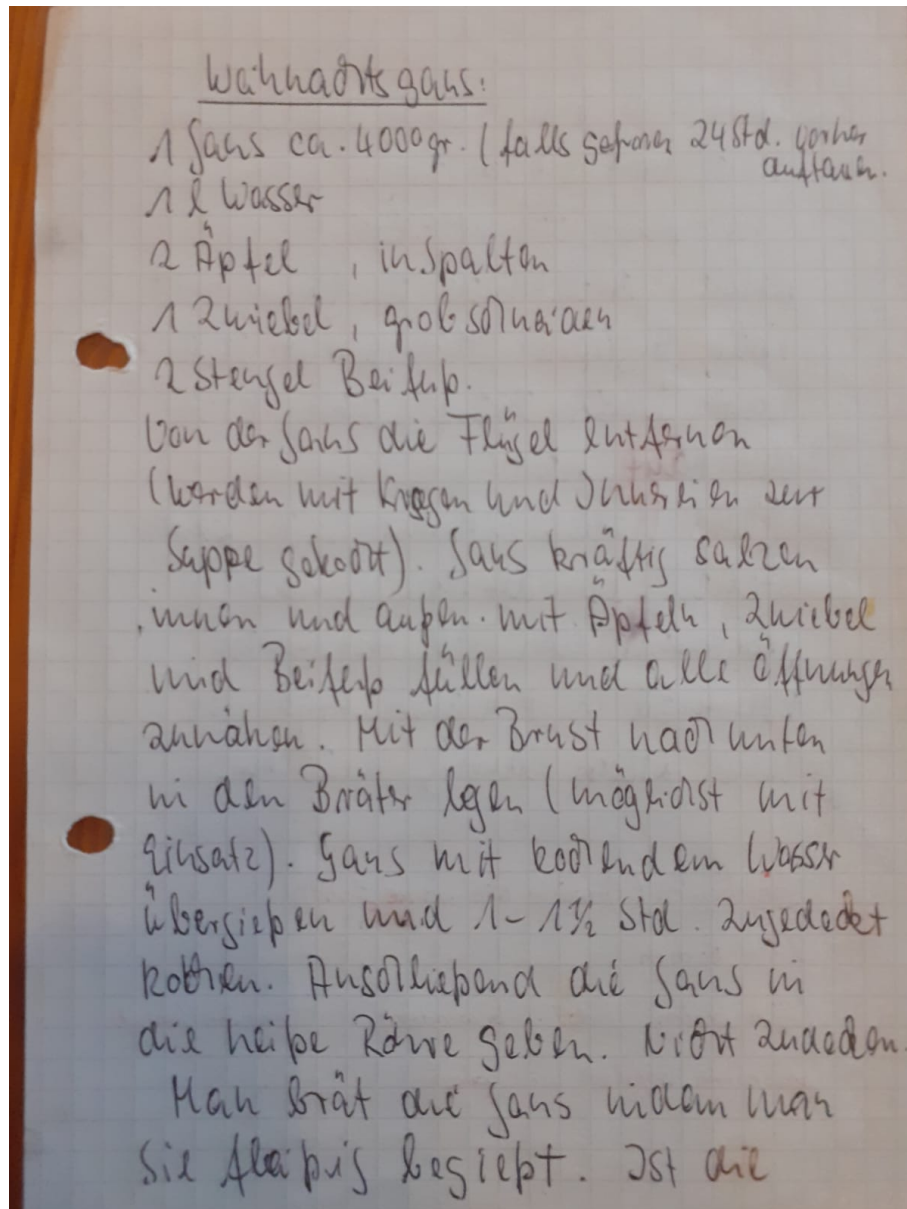 Weihnachtsgans:
1 Gans ca. 4000 gr. (falls gefroren 24 Std. vorher
auftauen.
1 l Wasser
2 Äpfel, in Spalten
1 Zwiebel, grob schneiden
2 Stengel Beifuß.
Von der Gans die Flügel entfernen
(werden mit Kragen und Innereien zur
Suppe gekocht). Gans kräftig salzen
innen und außen. mit Äpfeln, Zwiebel
und Beifuß füllen und alle Öffnungen
zunähen. Mit der Brust nach unten
in den Bräter legen (möglichst mit
Einsatz). Gans mit kochendem Wasser
übergießen und 1 – 1 ½ Std. zugedeckt
kochen. Anschließend die Gans in
die heiße Röhre geben. Nicht zudecken.
Man brät die Gans indem man
sie fleißig begießt. Ist die